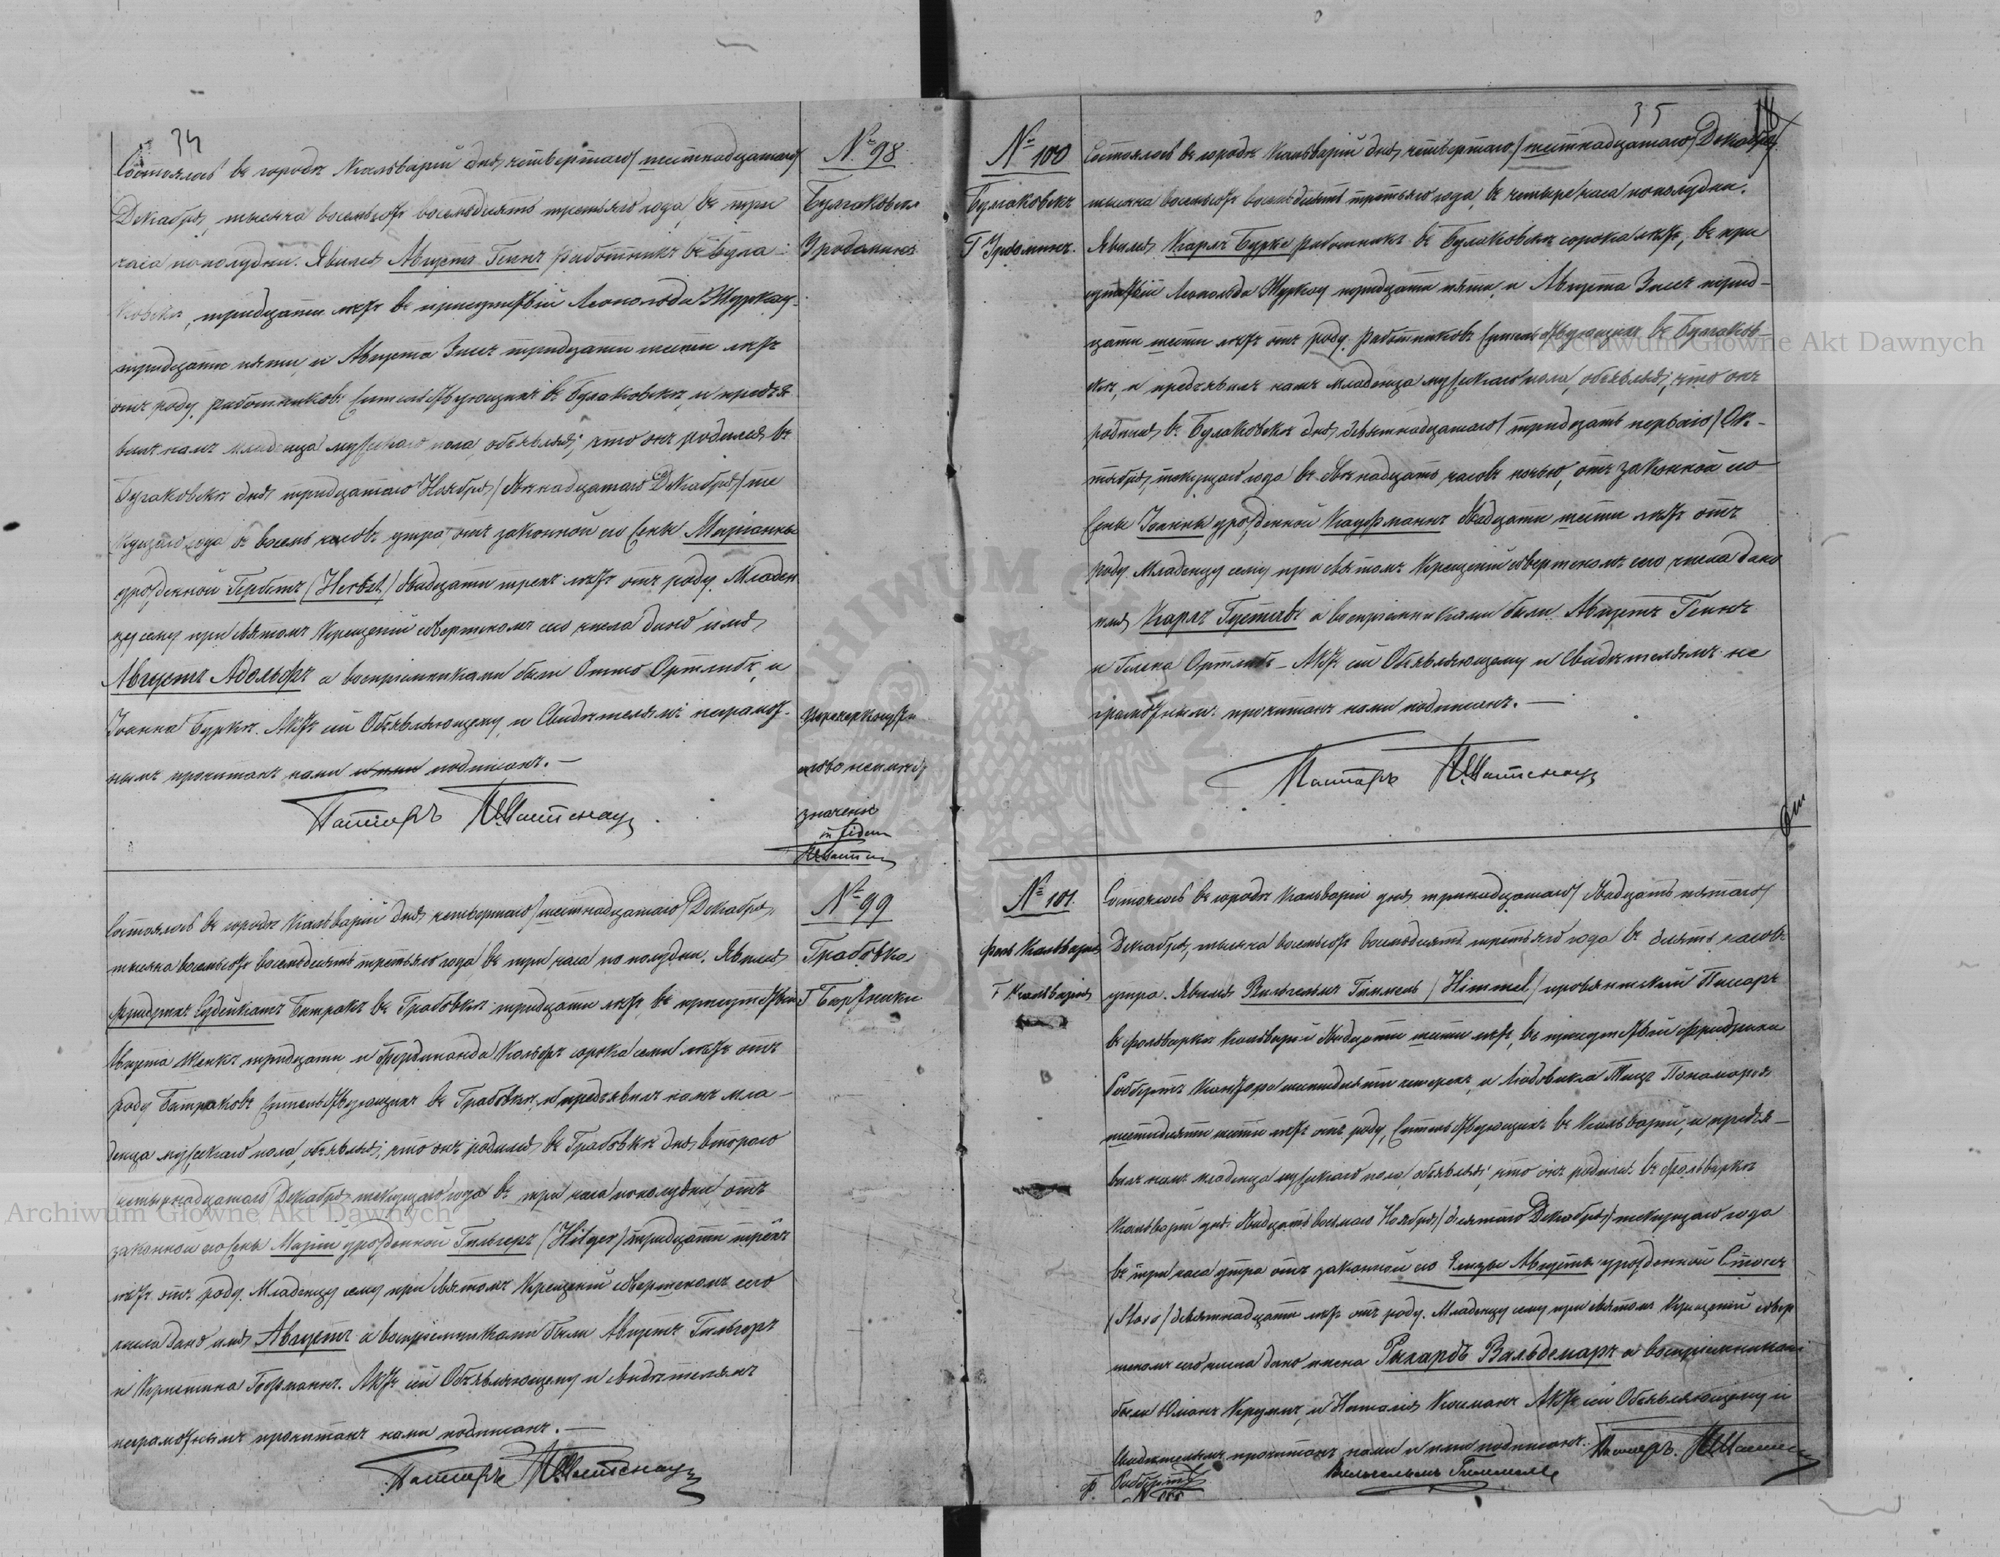 34
№ 98
Булаковска
Г Урдомина
Состоялось въ городѣ Кальварiи дня четвертаго/шестнадцатаго/
Декабря, тысяча восемьсотъ восемьдесятъ третьяго года, въ три
часа пополудни. Явился Августъ Геннъ работникъ въ Була-
ковскѣ, тридцати лѣтъ въ присутствiи Леопольда
тридцати пяти и Августа тридцати шести лѣтъ
отъ роду, работниковъ жительствующихъ въ Булаковскѣ, и предъя-
вилъ намъ младенца мужескаго пола, объявляя; что онъ родился въ
Булаковскѣ дня тридцатаго Ноября/двѣнадцатаго Декабря/те
кущаго года въ восемь часовъ утра, отъ законной его жены Марiанны
урожденной Гербстъ (Herbst) двадцати трехъ лѣтъ отъ роду. Младен
цу сему при Святомъ Крещенiи совершеномъ сего числа дано имя
Августъ Адольфъ а воспрiемниками были Отто Ортлибъ, и
Iоанна Бурке. Актъ сей Объявляющему и Свидѣтелямъ неграмот-
нымъ прочитанъ нами и ими подписанъ.—
Пасторъ
Зачеркнутое
слово неимѣетъ
значенiя
in fidem
№ 99
Грабовка
Г Бартники
Состоялось въ городѣ Кальварiи дня четвертаго/шестнадцатаго/Декабря,
тысяча восемьсотъ восемьдесятъ третьяго года въ три часа по полудни. Явился
Фридрихъ Батракъ въ Грабовкѣ тридцати лѣтъ, въ присутствiи
Августа тридцати, и Фердинанда сорока семи лѣтъ отъ
роду Батраковъ жительствующихъ въ Грабовкѣ, и предъявилъ намъ мла-
денца мужескаго пола, объявляя; что онъ родился въ Грабовкѣ дня втораго
четырнадцатаго Декабря текущаго года въ три часа пополудни отъ
законной его жены Марiи урожденной Гильгеръ (Hilger) тридцати трехъ
лѣтъ отъ роду. Младенцу сему при Святомъ Крещенiи совершеномъ сего
числа дано имя Августъ а воспрiемниками были Августъ Гильгеръ
и Христина Гофманнъ. Актъ сей Объявляющему и свидѣтелямъ
неграмотнымъ прочитанъ нами подписанъ.—
Пасторъ
35
№ 100
Булаковскъ
Г Урдоминъ
Состоялось въ городѣ Кальварiи дня четвертаго/шестнадцатаго/Декабря
тысяча восемьсотъ восемьдесятъ третьяго года, въ четыре часа пополудни.
Явился Карлъ Бурке работникъ въ Булаковскѣ сорока лѣтъ, въ при
сутствiи Леопольда тридцати пяти, и Августа трид-
цати шести лѣтъ отъ роду, работниковъ жительствующихъ въ Булаков-
скѣ, и предъявилъ намъ младенца мужескаго пола, объявляя; что онъ
родился въ Булаковскѣ дня девятнадцатаго/тридцать перваго/Ок-
тября, текущаго года въ двѣнадцать часовъ ночью, отъ законной его
жены Iоанны урожденной Кауфманнъ двадцати шести лѣтъ отъ
роду. Младенцу сему при святомъ Крещенiи совершеномъ сего числа дано
имя Карлъ Густавъ а воспрiемниками были Августъ Геннъ
и Ортлибъ — Актъ сей Объявляющему и Свидѣтелямъ не
грамотнымъ прочитанъ нами подписанъ.—
Пасторъ
№ 101
фоль Кальварiя
Г Кальварiя
Состоялось въ городѣ Кальварiи дня тринадцатаго/двадцать пятаго/
Декабря, тысяча восемьсотъ восемьдесятъ третьяго года въ девять часовъ
утра. Явился Вильгельмъ Гиммель /Himmel/ провiантскiй Писарь
въ фольваркѣ Кальварiи двадцати шести лѣтъ, въ присутствiи Фридриха
Кантора шестидесяти четырехъ, и Людовика Тицъ Пономаря
шестидесяти шести лѣтъ отъ роду, жительствующихъ въ Кальварiи, и предъя-
вилъ намъ младенца мужескаго пола, объявляя; что онъ родился въ фольваркѣ
Кальварiи дня двадцать восьмаго Ноября/десятаго Декабря/текущаго года
въ три часа утра отъ законной его Елизы Августы урожденной
девятнадцати лѣтъ отъ роду. Младенцу сему при святомъ Крещенiи совер
шеномъ сего числа дано имена Рихардъ Вальдемаръ а воспрiемниками
были и Наталiя Актъ сей Объявляющему и
Свидѣтелямъ прочитанъ нами и ими подписанъ. Пасторъ
Вильгельмъ Гиммель
Archiwum Główne Akt Dawnych
Archiwum Główne Akt Dawnych